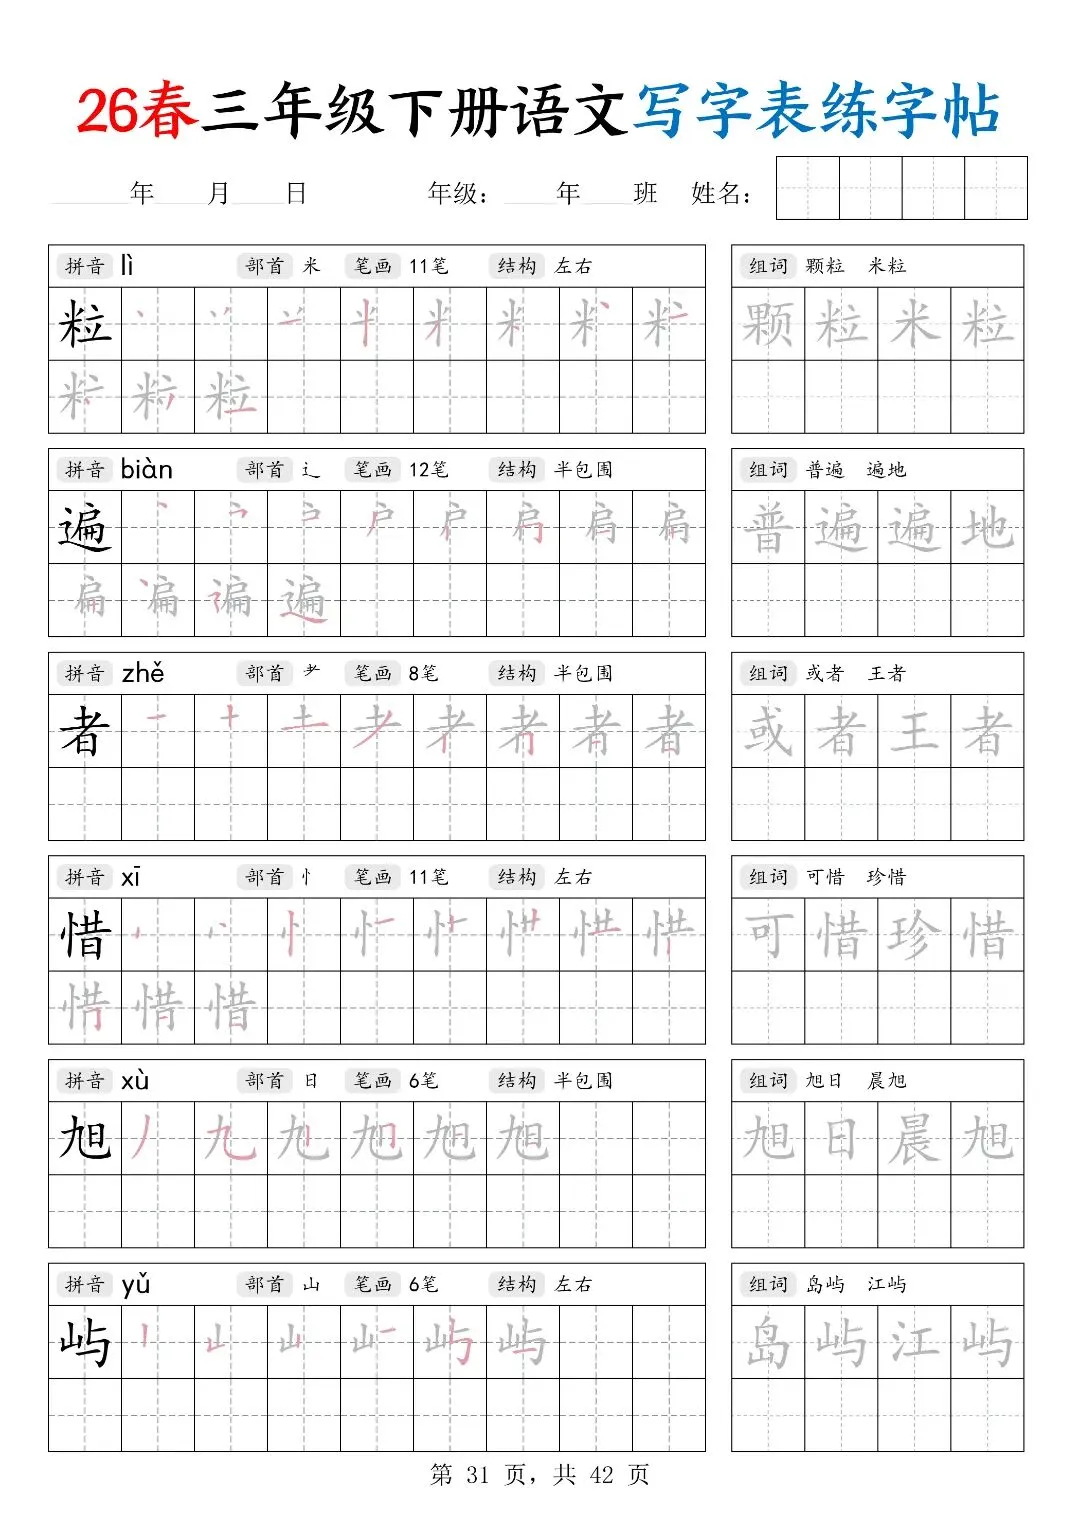 26春三年级下册语文写字表练字帖
年 月 日 年级: 年 班 姓名:
拼音 lì 部首 米 笔画 11笔 结构 左右 组词 颗粒 米粒
粒 颗粒米粒
粒
拼音 biàn 部首 辶 笔画 12笔 结构 半包围 组词 普遍 遍地
遍 普遍遍地
遍
拼音 zhě 部首 耂 笔画 8笔 结构 半包围 组词 或者 王者
者 者 或者王者
拼音 xī 部首 忄 笔画 11笔 结构 左右 组词 可惜 珍惜
惜 可惜珍惜
惜
拼音 xù 部首 日 笔画 6笔 结构 半包围 组词 旭日 晨旭
旭 旭 旭日晨旭
拼音 yǔ 部首 山 笔画 6笔 结构 左右 组词 岛屿 江屿
屿 屿 岛屿江屿
第 31 页，共 42 页